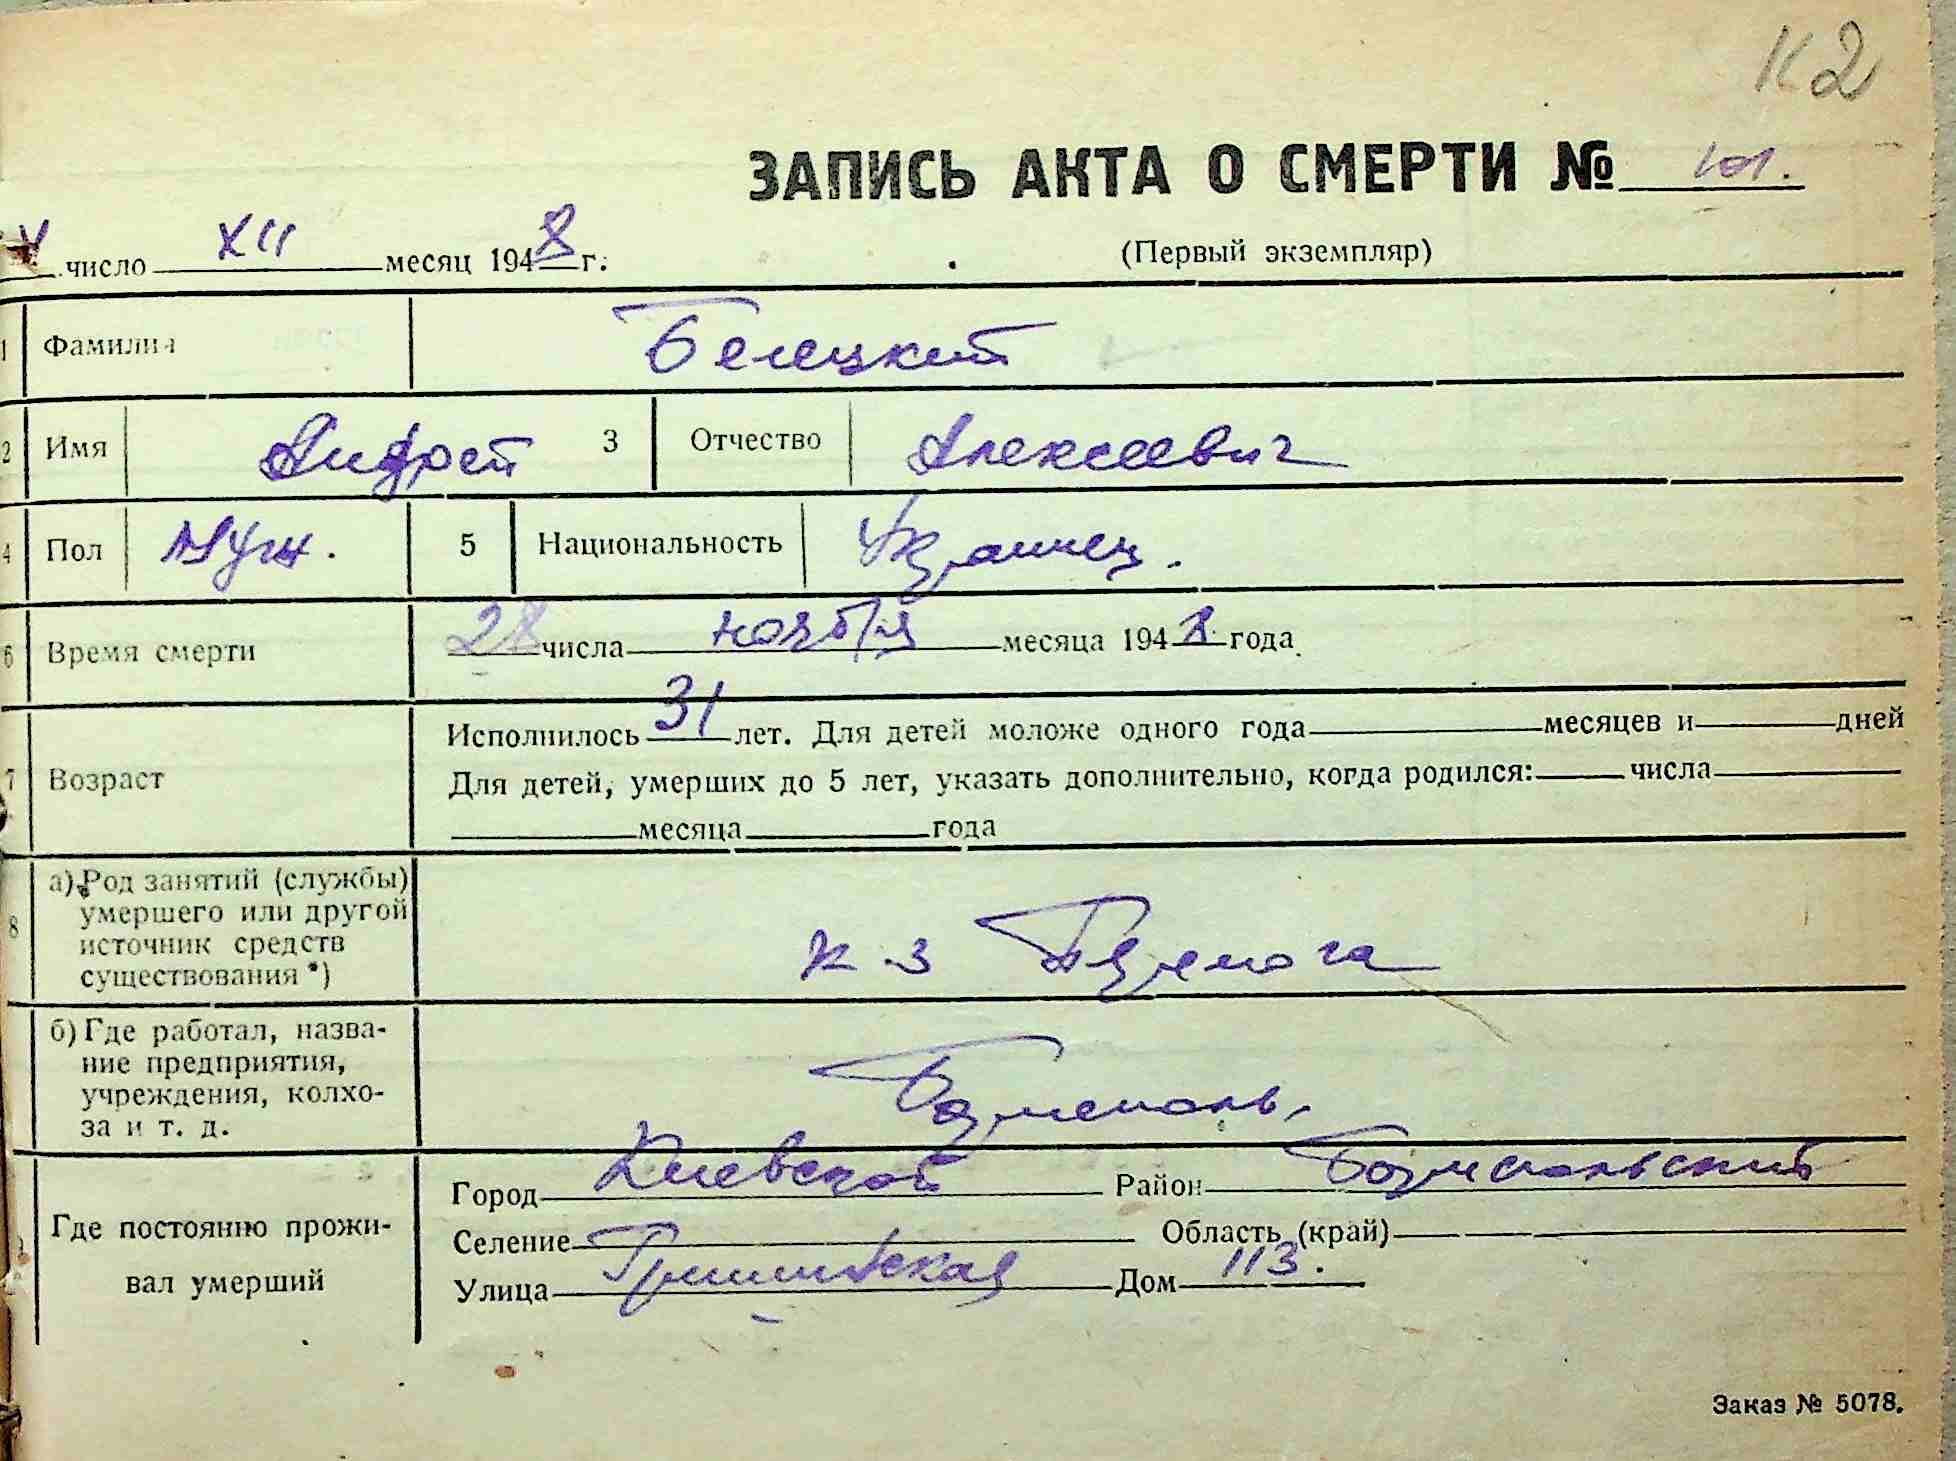 к2
ЗАПИСЬ АКТА О СМЕРТИ № 101.
число XII месяц 1948 г.
(Первый экземпляр)
1 Фамилия Белецкий
2 Имя Андрей 3 Отчество Алексеевич
4 Пол Муж. 5 Национальность Украинец.
6 Время смерти 28 числа ноября месяца 1948 года
7 Возраст
Исполнилось 31 лет. Для детей моложе одного года месяцев и дней
Для детей, умерших до 5 лет, указать дополнительно, когда родился: числа
месяца года
8 а) Род занятий (службы)
умершего или другой
источник средств
существования *)
к-з Перемога
б) Где работал, назва-
ние предприятия,
учреждения, колхо-
за и т. д.
Борисполь,
Где постоянно прожи-
вал умерший
Город Киевской Район Бориспольский
Селение Область (край)
Улица Дом 113.
Заказ № 5078.